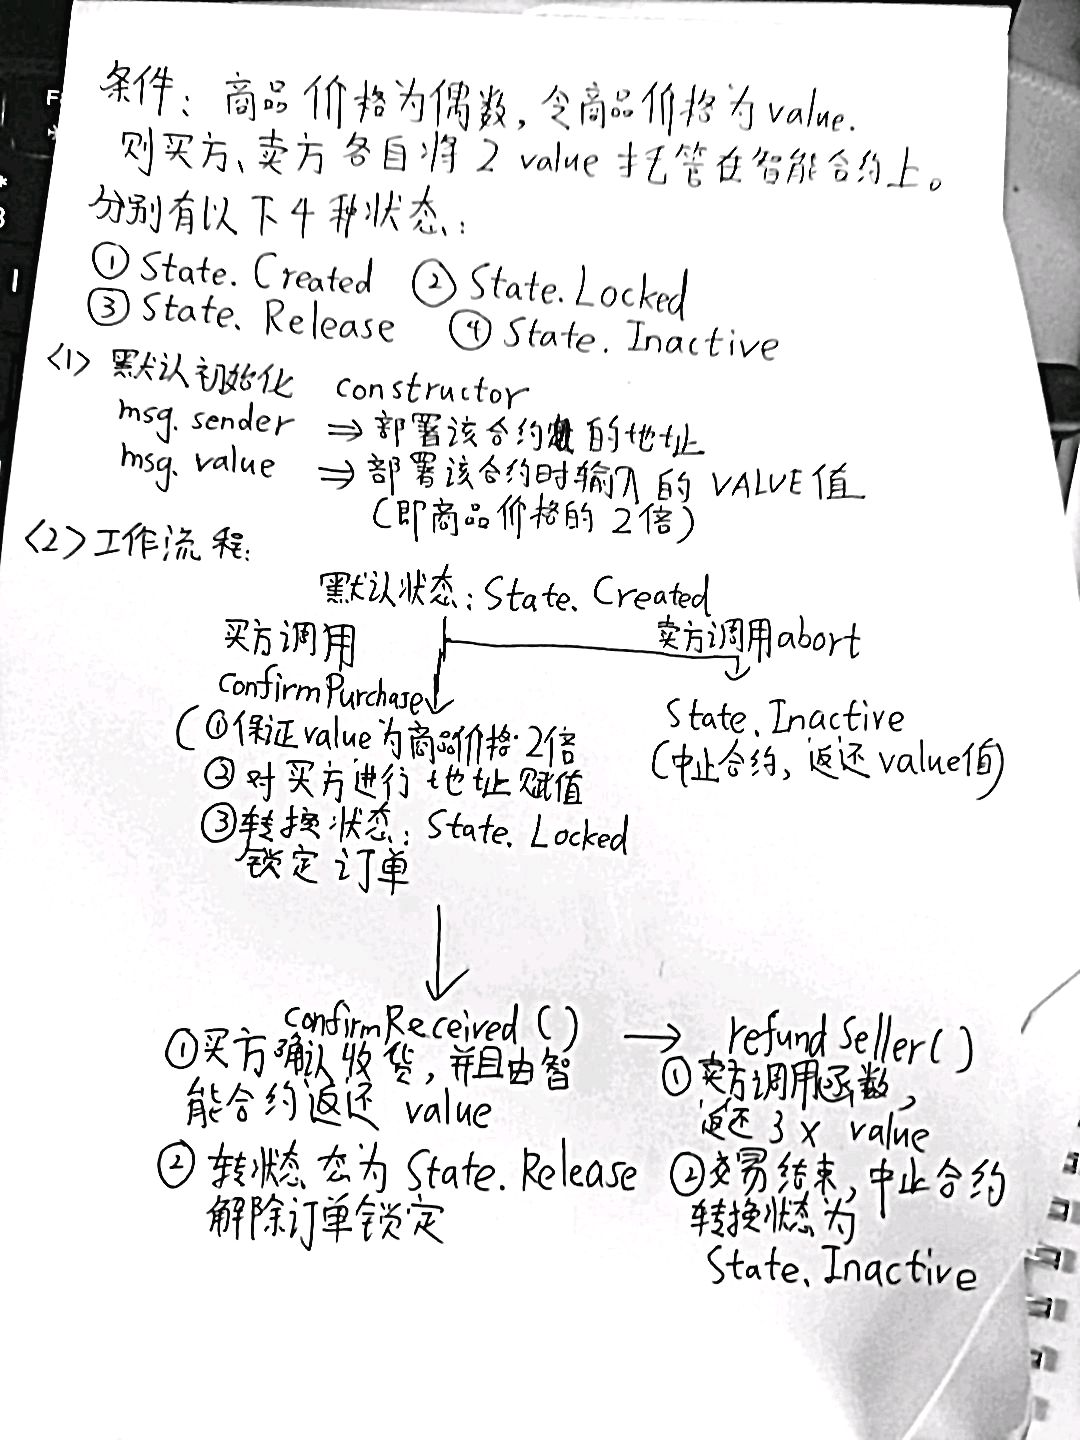 条件：商品价格为偶数，令商品价格为value.
则买方、卖方各自将2 value托管在智能合约上。
分别有以下4种状态：
① State. Created ② State. Locked
③ State. Release ④ State. Inactive
<1> 默认初始化 constructor
msg. sender ⇒ 部署该合约的地址
msg. value ⇒ 部署该合约时输入的 VALUE值
(即商品价格的2倍)
<2>工作流程：
默认状态：State. Created
买方调用
confirmPurchase
卖方调用abort
State. Inactive
(中止合约，返还value值)
(①保证value为商品价格·2倍
②对买方进行地址赋值
③转换状态：State. Locked
锁定订单
confirmReceived ( ) → refund Seller( )
①买方确认收货，并且由智
能合约返还 value
② 转状态态为 State. Release
解除订单锁定
①卖方调用函数，
返还 3 x value
②交易结束，中止合约
转换状态为
State. Inactive